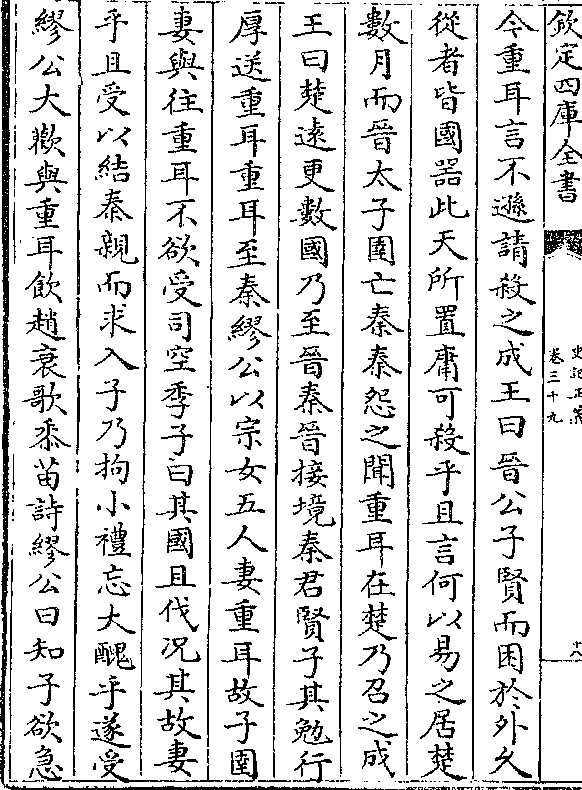 欽定四庫全書
史記正義
卷三十九
十八
今重耳言不遜請殺之成王曰晉公子賢而困於外久
從者皆國器此天所置庸可殺乎且言何以易之居楚
數月而晉太子圉亡秦秦怨之聞重耳在楚乃召之成
王曰楚遠更數國乃至晉秦晉接境秦君賢子其勉行
厚送重耳重耳至秦繆公以宗女五人妻重耳故子圉
妻與往重耳不欲受司空季子曰其國且伐况其故妻
乎且受以結秦親而求入子乃拘小禮忘大醜乎遂受
繆公大歡與重耳飲趙衰歌黍苗詩繆公曰知子欲急